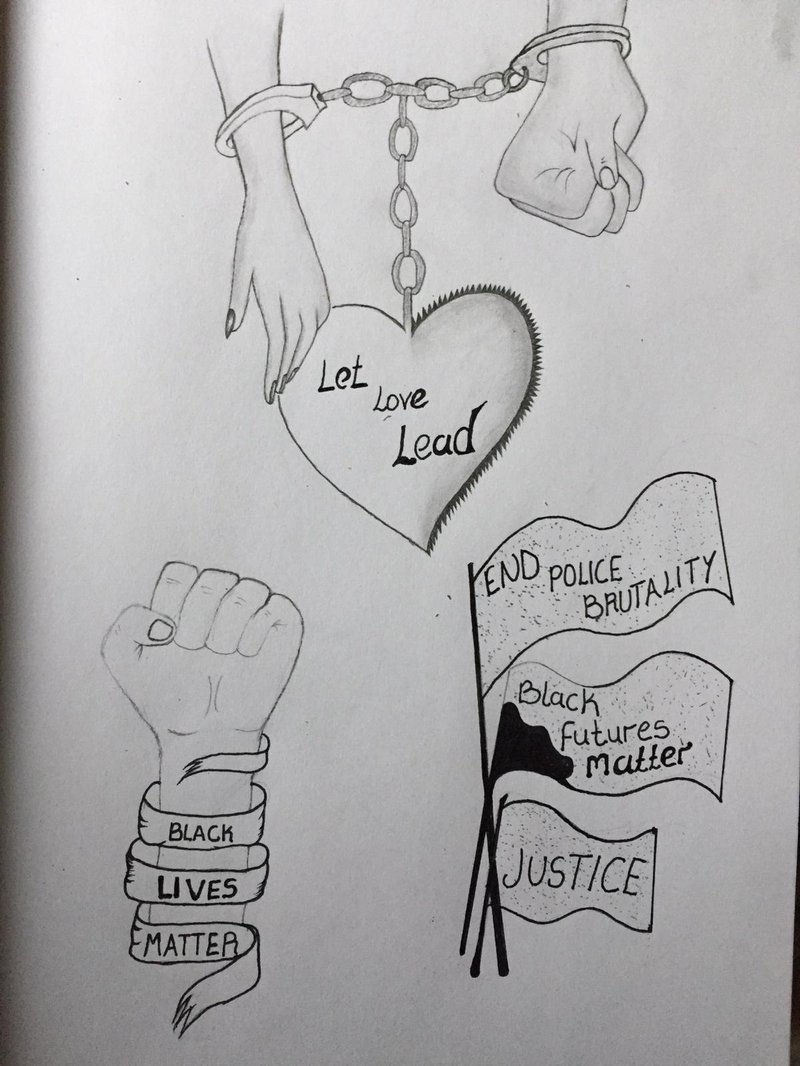 Let
Love
Lead
END POLICE
BRUTALITY
Black
futures
Matter
JUSTICE
BLACK
LIVES
MATTER